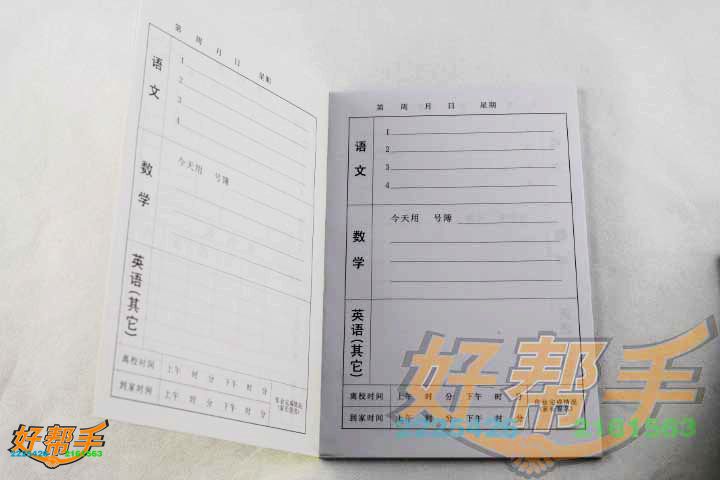 第 周 月 日 星期
语文
1
2
3
4
数学
今天用 号簿
英语(其它)
离校时间 上午 时 分 下午 时 分
到家时间 上午 时 分 下午 时 分
作业完成情况
(家长签字)
第 周 月 日 星期
语文
1
2
3
4
数学
今天用 号簿
英语(其它)
离校时间 上午 时 分 下午 时 分
到家时间 上午 时 分 下午 时 分
作业完成情况
(家长签字)
好帮手
2225426 2161563
好帮手
2225426 2161563